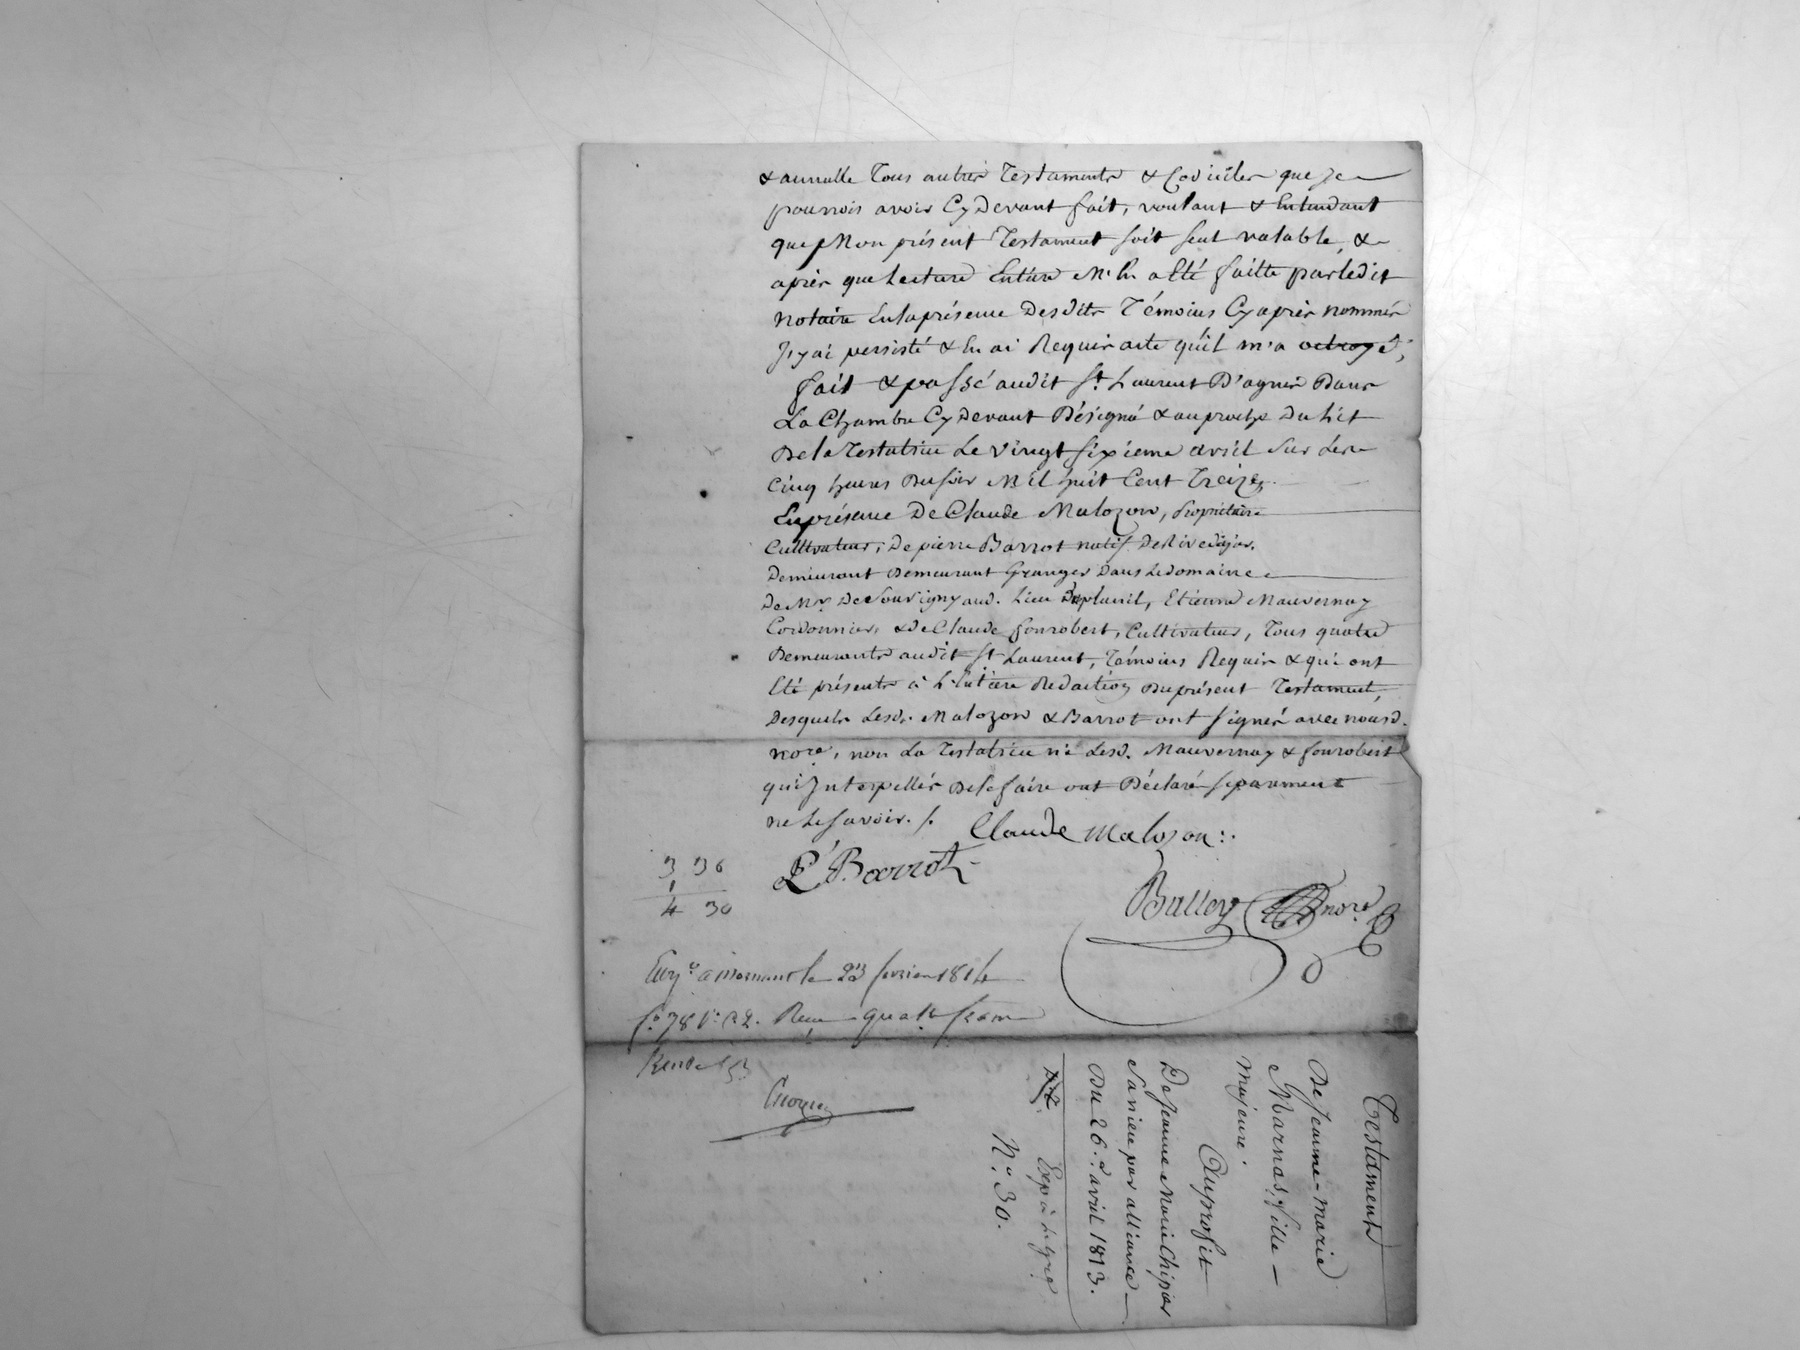 & annulle Tous autres Testaments & Codicilles que Je
pourrois avoir Cy Devant fait, voulant & Entendant
que Mon présent Testament soit seul valable, &
après que Lecture Entière M'En a Eté faitte par ledit
notaire En la présence Desdits Témoins Cy après nommés
J'y ai persisté & En ai Requis acte qu'il m'a octroyé;
fait & passé audit St Laurent D'agnis Dans
La Chambre Cy Devant Désigné & au proche Du Lit
De la Testatrice Le Vingt sixieme avril Sur Les
Cinq heures Du soir Mil huit Cent Treize.
En présence De Claude Malozon, propriétaire
Cultivateur, De pierre Barrot natif De
Demeurant Demeurant Granger Dans Le domaine
De Mr De Souvigny aud. Lieu Etienne Mauvernay
Cordonnier, & De Claude fourobert, Cultivateur, Tous quatre
Demeurants audit St Laurent, Témoins Requis & qui ont
Eté présents à L'Entière Rédaction Du présent Testament,
Desquels Lesd. Malozon & Barrot ont signés avec nous d.
nore, non La Testatrice ni Lesd. Mauvernay & fourobert
qui Interpellés De le faire ont Déclaré séparément
ne Le savoir. /.
Claude Malozon
P Barrot
Balley nore
3 36
4 30
Enrg.o a Mornant le 23 fevrier 1814
fo 78 Vo C 2. Recu quatre francs
Testament
De Jeanne-Marie
Marnas, fille
Majeure.
Au profit
De Jeanne Marie Chipier
Sa niece par alliance
Du 26.e avril 1813.
Exp à
No. 30.